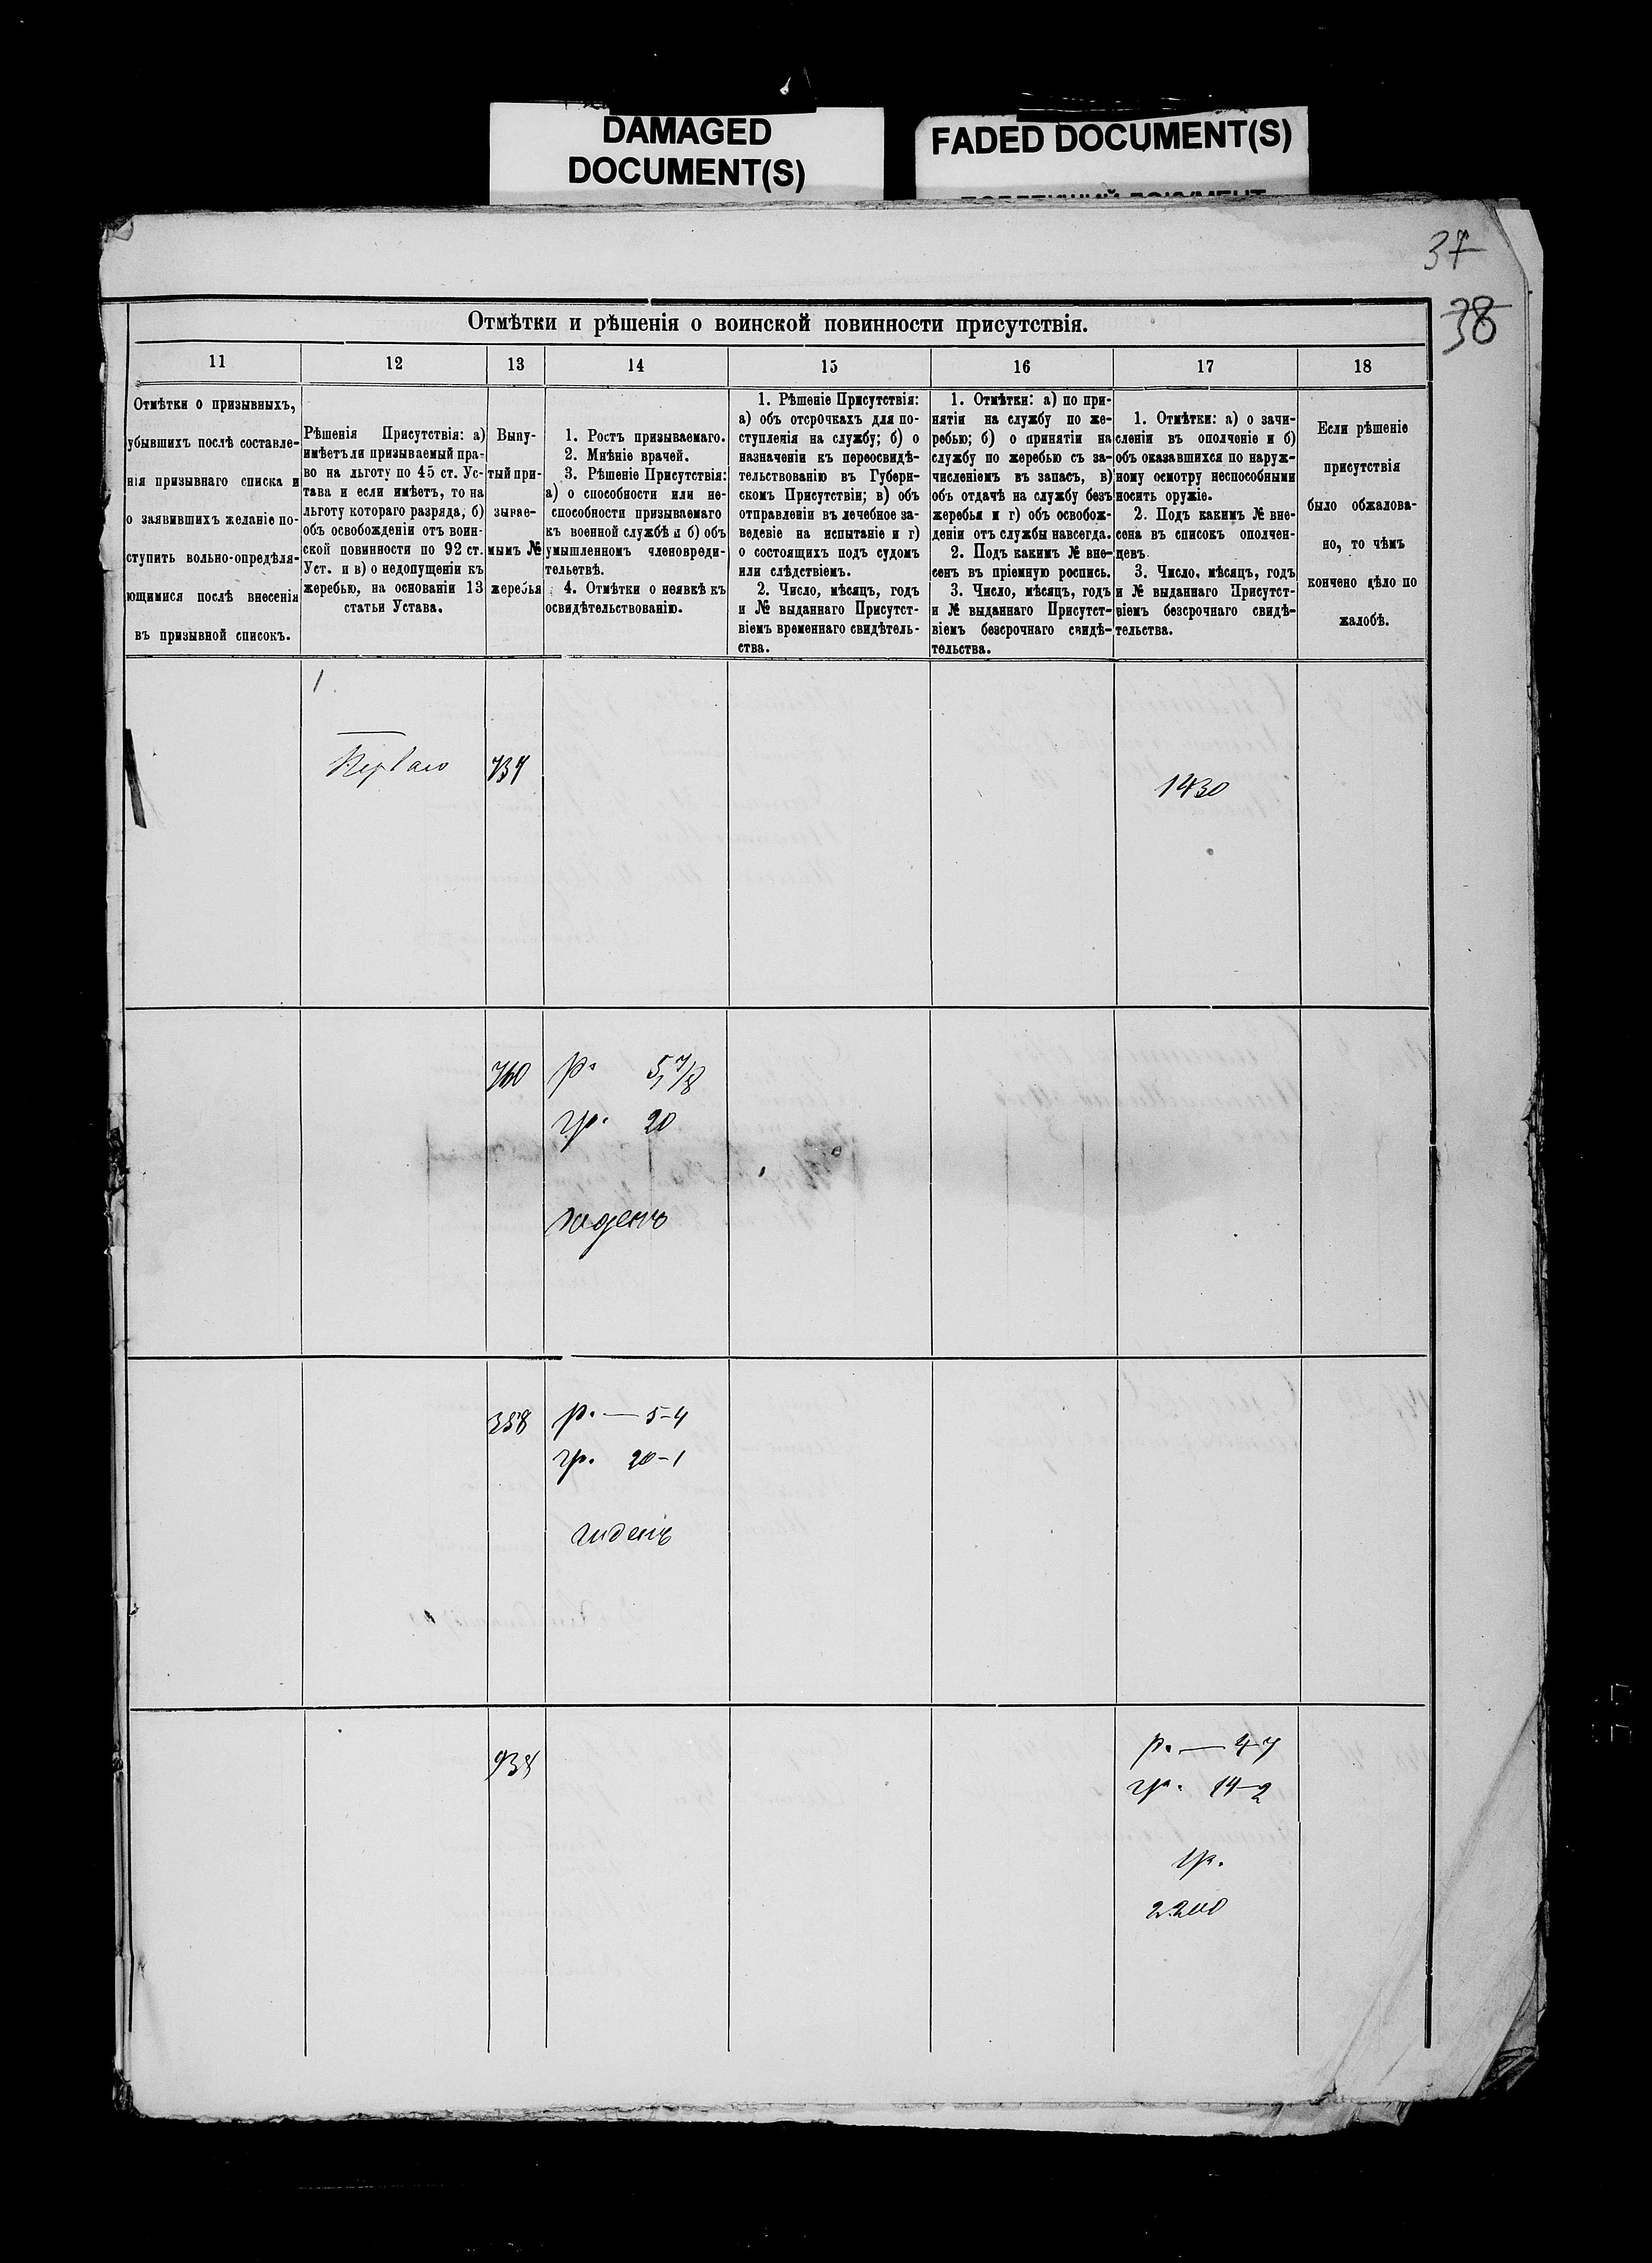 DAMAGED
DOCUMENT(S)
FADED DOCUMENT(S)
37
38
Отмѣтки и рѣшенія о воинской повинности присутствія.
11
12
13
14
15
16
17
18
Отмѣтки о призывныхъ,
убывшихъ послѣ составле-
нія призывнаго списка и
о заявившихъ желаніе по-
ступить вольно-опредѣля-
ющимися послѣ внесенія
въ призывной списокъ.
Рѣшенія Присутствія: а)
имѣетъ ли призываемый пра-
во на льготу по 45 ст. Ус-
тава и если имѣетъ, то на
льготу котораго разряда, б)
объ освобожденіи отъ воин-
ской повинности по 92 ст.
Уст. и в) о недопущеніи къ
жеребью, на основаніи 13
статьи Устава.
Выну-
тый при-
зывае-
мымъ №
жеребья
1. Ростъ призываемаго.
2. Мнѣніе врачей.
3. Рѣшеніе Присутствія:
а) о способности или не-
способности призываемаго
къ военной службѣ и б) объ
умышленномъ членовреди-
тельствѣ.
4. Отмѣтки о неявкѣ къ
освидѣтельствованію.
1. Рѣшеніе Присутствія:
а) объ отсрочкахъ для по-
ступленія на службу; б) о
назначеніи къ переосвидѣ-
тельствованію въ Губерн-
скомъ Присутствіи; в) объ
отправленіи въ лечебное за-
веденіе на испытаніе и г)
о состоящихъ подъ судомъ
или слѣдствіемъ.
2. Число, мѣсяцъ, годъ
и № выданнаго Присутст-
віемъ временнаго свидѣтель-
ства.
1. Отмѣтки: а) по при-
нятіи на службу по же-
ребью; б) о принятіи на
службу по жеребью съ за-
численіемъ въ запасъ, в)
объ отдачѣ на службу безъ
жеребья и г) объ освобож-
деніи отъ службы навсегда.
2. Подъ какимъ № вне-
сенъ въ пріемную роспись.
3. Число, мѣсяцъ, годъ
и № выданнаго Присутст-
віемъ безсрочнаго свидѣ-
тельства.
1. Отмѣтки: а) о зачи-
сленіи въ ополченіе и б)
объ оказавшихся по наруж-
ному осмотру неспособными
носить оружіе.
2. Подъ какимъ № вне-
сена въ списокъ ополчен-
цевъ.
3. Число, мѣсяцъ, годъ
и № выданнаго Присутст-
віемъ безсрочнаго свидѣ-
тельства.
Если рѣшеніе
присутствія
было обжалова-
но, то чѣмъ
кончено дѣло по
жалобѣ.
737
1430
760
р. 5,7/8
гр. 20
годенъ
358
р. — 5-4
гр. 20-1
годенъ
938
р. — 4-7
гр. 14-2
гр.
2200